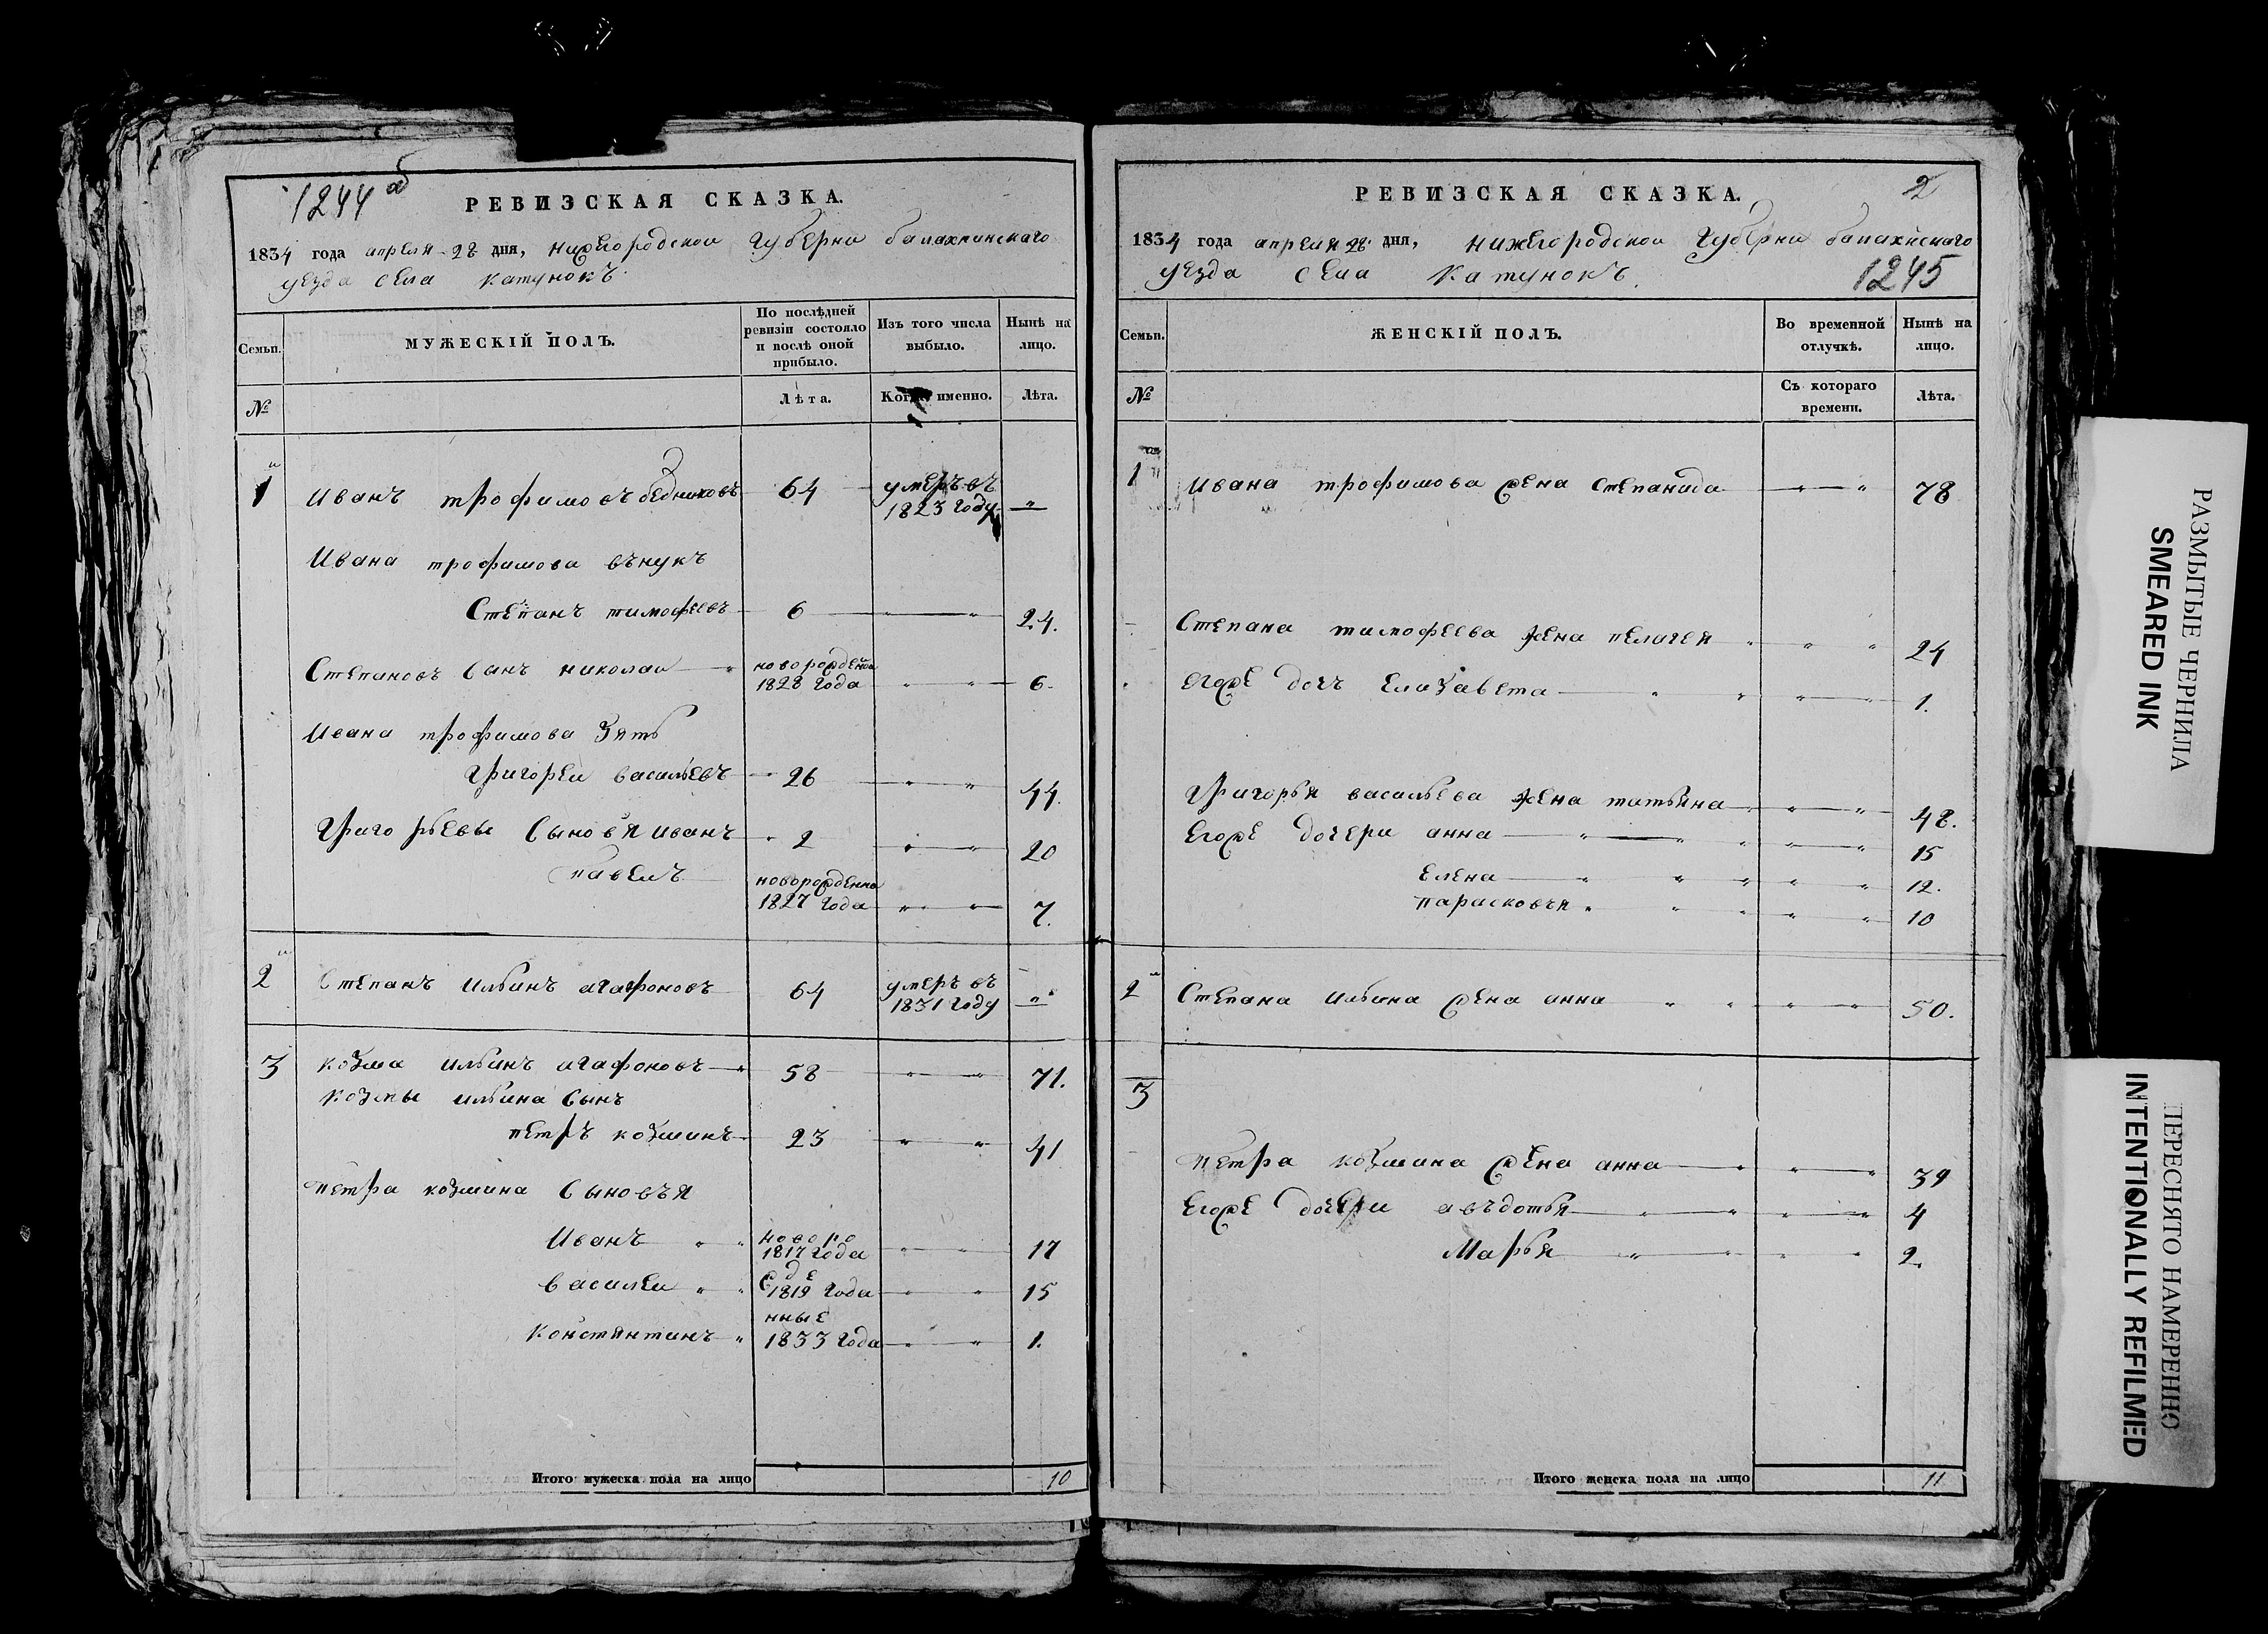 1244 об
РЕВИЗСКАЯ СКАЗКА.
1834 года апреля 28 дня, нижегородской губерни балахнинскаго
уезда села катунокъ
Семьи.
МУЖЕСКІЙ ПОЛЪ.
По послѣдней
ревизіи состояло
и послѣ оной
прибыло.
Изъ того числа
выбыло.
Нынѣ на
лицо.
№
Лѣта.
Когда именно.
Лѣта.
1й Иванъ трофимовъ бедняковъ 64 умеръ въ
1823 году "
Ивана трофимова внукъ
Степанъ тимофеевъ 6 " 24.
Степановъ сынъ николаи новорожденои
1828 года " " 6.
Ивана трофимова зять
григореи васильевъ 26 " " 44.
григорьевы сыновья иванъ " 2 " " 20
павелъ новорожденна
1827 года " " 7.
2й Степанъ ильинъ агафоновъ 64 умеръ въ
1831 году "
3 козма ильинъ агафоновъ 58 " " 71.
козмы ильина сынъ
петръ козминъ 23 " " 41
петра козмина сыновъя
Иванъ " " новоро
1817 года " " 17
василеи " " жде
1819 года " " 15
константинъ " нные
1833 года " " 1.
Итого мужеска пола на лицо 10
РЕВИЗСКАЯ СКАЗКА.
2
1834 года апреля 28 дня, нижегородской губерни балахнскаго
уезда села катунокъ
1245
Семьи.
ЖЕНСКІЙ ПОЛЪ.
Во временной
отлучкѣ.
Нынѣ на
лицо.
№
Съ котораго
времени.
Лѣта.
1 Ивана трофимова жена степанида " " 78
Степана тимофеева жена пелагея " " " 24
егоже дочъ елизавета " " " " 1.
григорья васильева жена татьяна " " 48.
егоже дочери анна " " " " " 15
елена " " " " " 12.
парасковъя " " " " " 10
2й Степана ильина жена анна " " " " 50.
3
петра козмина жена анна " " " 39
егоже дочери авъдотья " " " " 4
Марья " " " " 2.
Итого женска пола на лицо 11
РАЗМЫТЫЕ ЧЕРНИЛА
SMEARED INK
ПЕРЕСНЯТО НАМЕРЕННО
INTENTIONALLY REFILMED